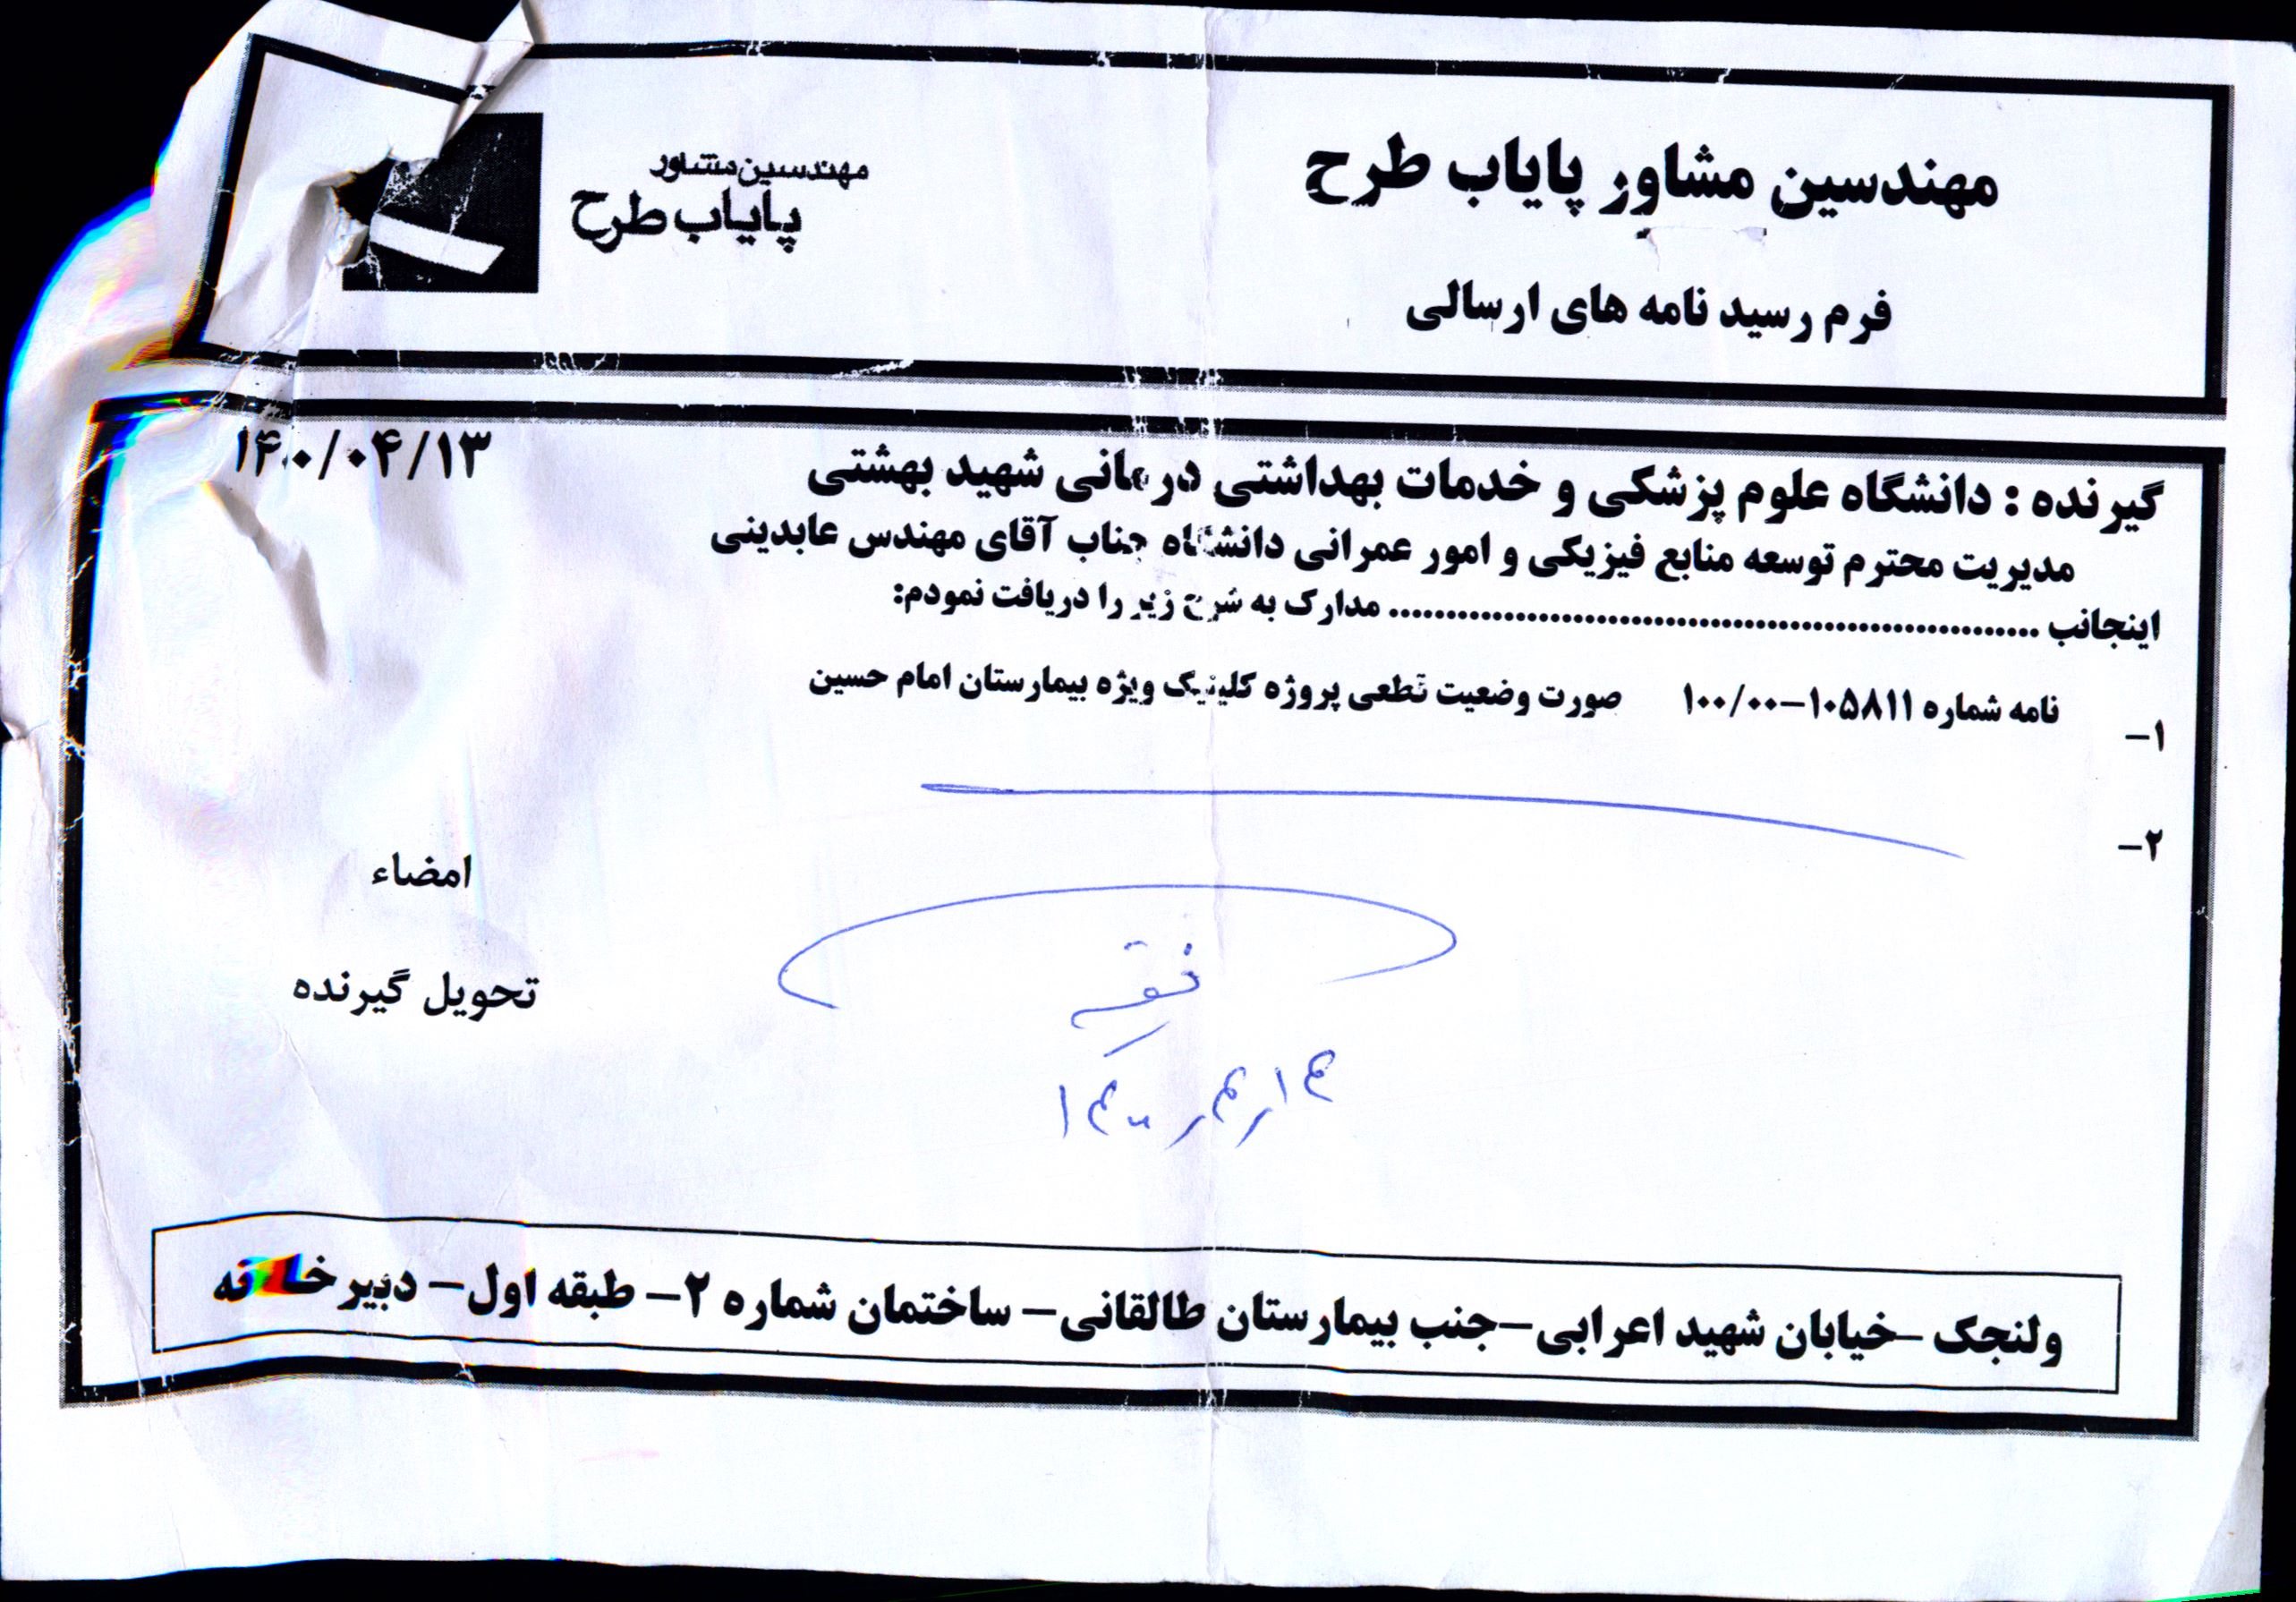 مهندسین مشاور پایاب طرح
مهندسین مشاور
پایاب طرح
فرم رسید نامه های ارسالی
۱۴۰۰/۰۴/۱۳
گیرنده : دانشگاه علوم پزشکی و خدمات بهداشتی درمانی شهید بهشتی
مدیریت محترم توسعه منابع فیزیکی و امور عمرانی دانشگاه جناب آقای مهندس عابدینی
اینجانب ........................................................ مدارک به شرح زیر را دریافت نمودم:
۱- نامه شماره ۱۰۵۸۱۱-۱۰۰/۰۰ صورت وضعیت قطعی پروژه کلینیک ویژه بیمارستان امام حسین
۲-
امضاء
تحویل گیرنده
ولنجک -خیابان شهید اعرابی-جنب بیمارستان طالقانی- ساختمان شماره ۲- طبقه اول- دبیرخانه